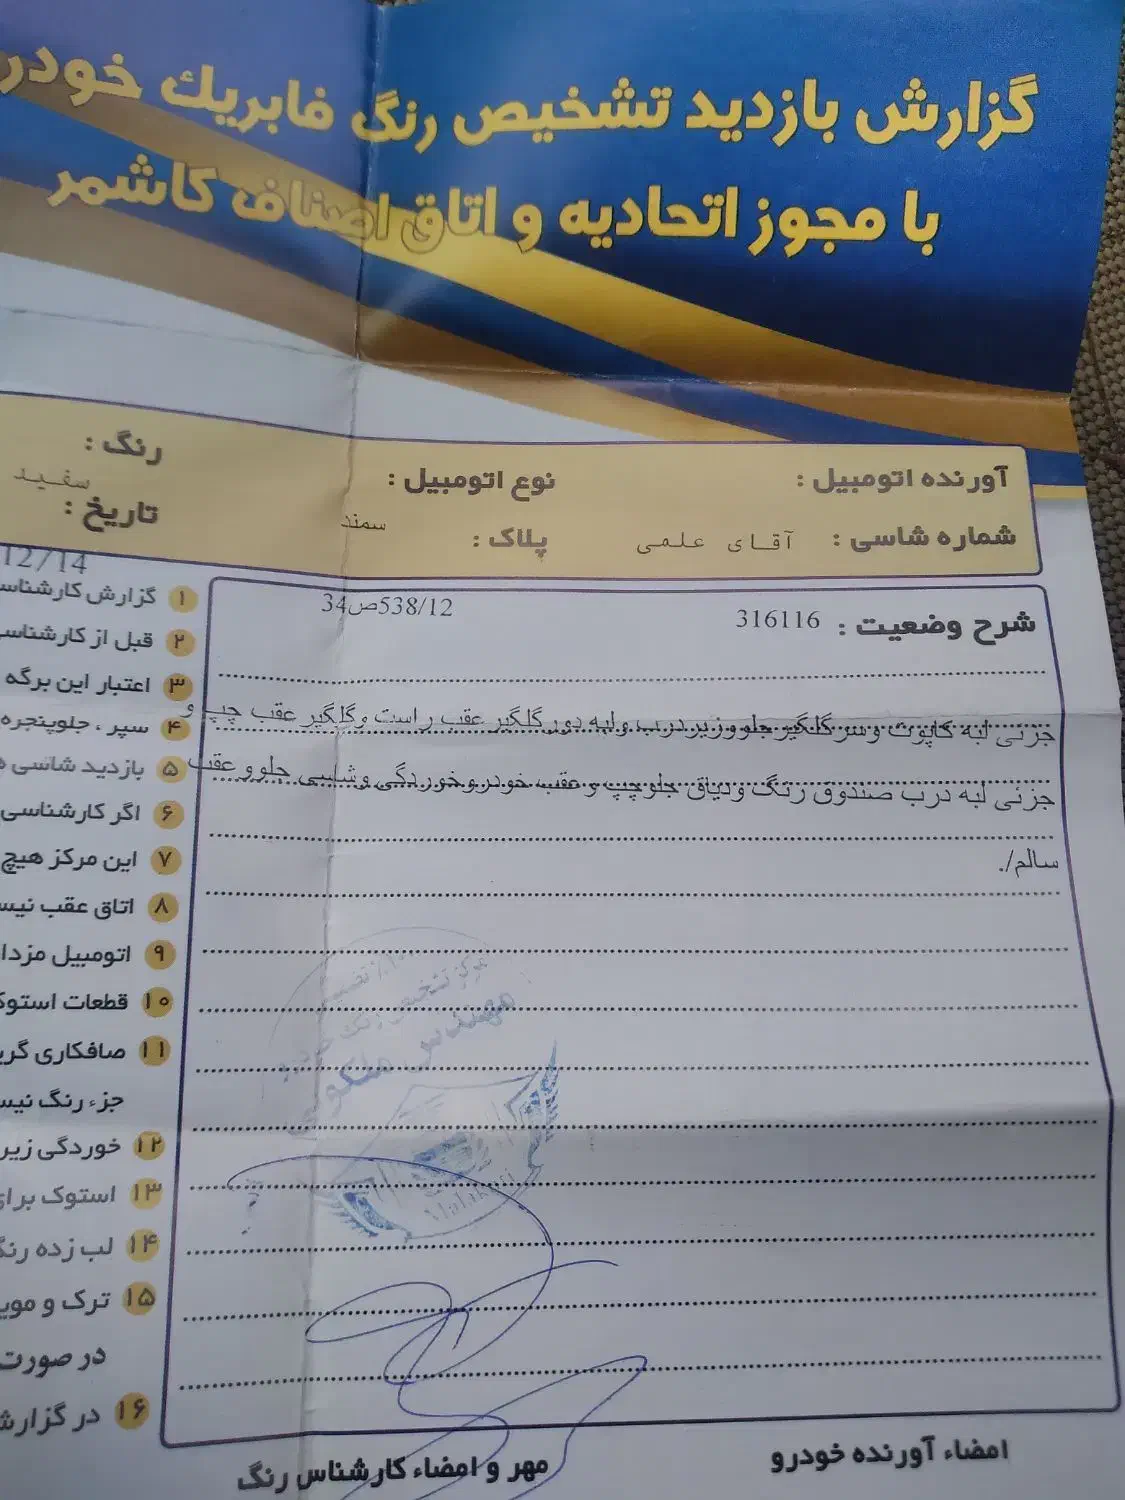 گزارش بازدید تشخیص رنگ فابریك خودر
با مجوز اتحادیه و اتاق اصناف کاشمر
آورنده اتومبیل :
نوع اتومبیل :
رنگ :
آقای علمی
سمند
سفید
شماره شاسی :
پلاک :
تاریخ :
316116
34ص538/12
12/14
شرح وضعیت :
جزئی لبه کاپوت و سر گلگیر جلو و زیر درب و لبه دور گلگیر عقب راست و گلگیر عقب چپ و
جزئی لبه درب صندوق رنگ و دیاق جلو چپ و عقب خودرو خوردگی و شاسی جلو و عقب
سالم/.
۱ گزارش کارشناس
۲ قبل از کارشناسی
۳ اعتبار این برگه
۴ سپر ، جلوپنجره
۵ بازدید شاسی
۶ اگر کارشناسی
۷ این مرکز هیچ
۸ اتاق عقب نیس
۹ اتومبیل مزدا
۱۰ قطعات استوک
۱۱ صافکاری گری
جزء رنگ نیس
۱۲ خوردگی زیر
۱۳ استوک برای
۱۴ لب زده رنگ
۱۵ ترک و مویی
در صورت
۱۶ در گزارش
مرکز تشخیص رنگ خودرو
مهندس ملکوتی
امضاء آورنده خودرو
مهر و امضاء کارشناس رنگ